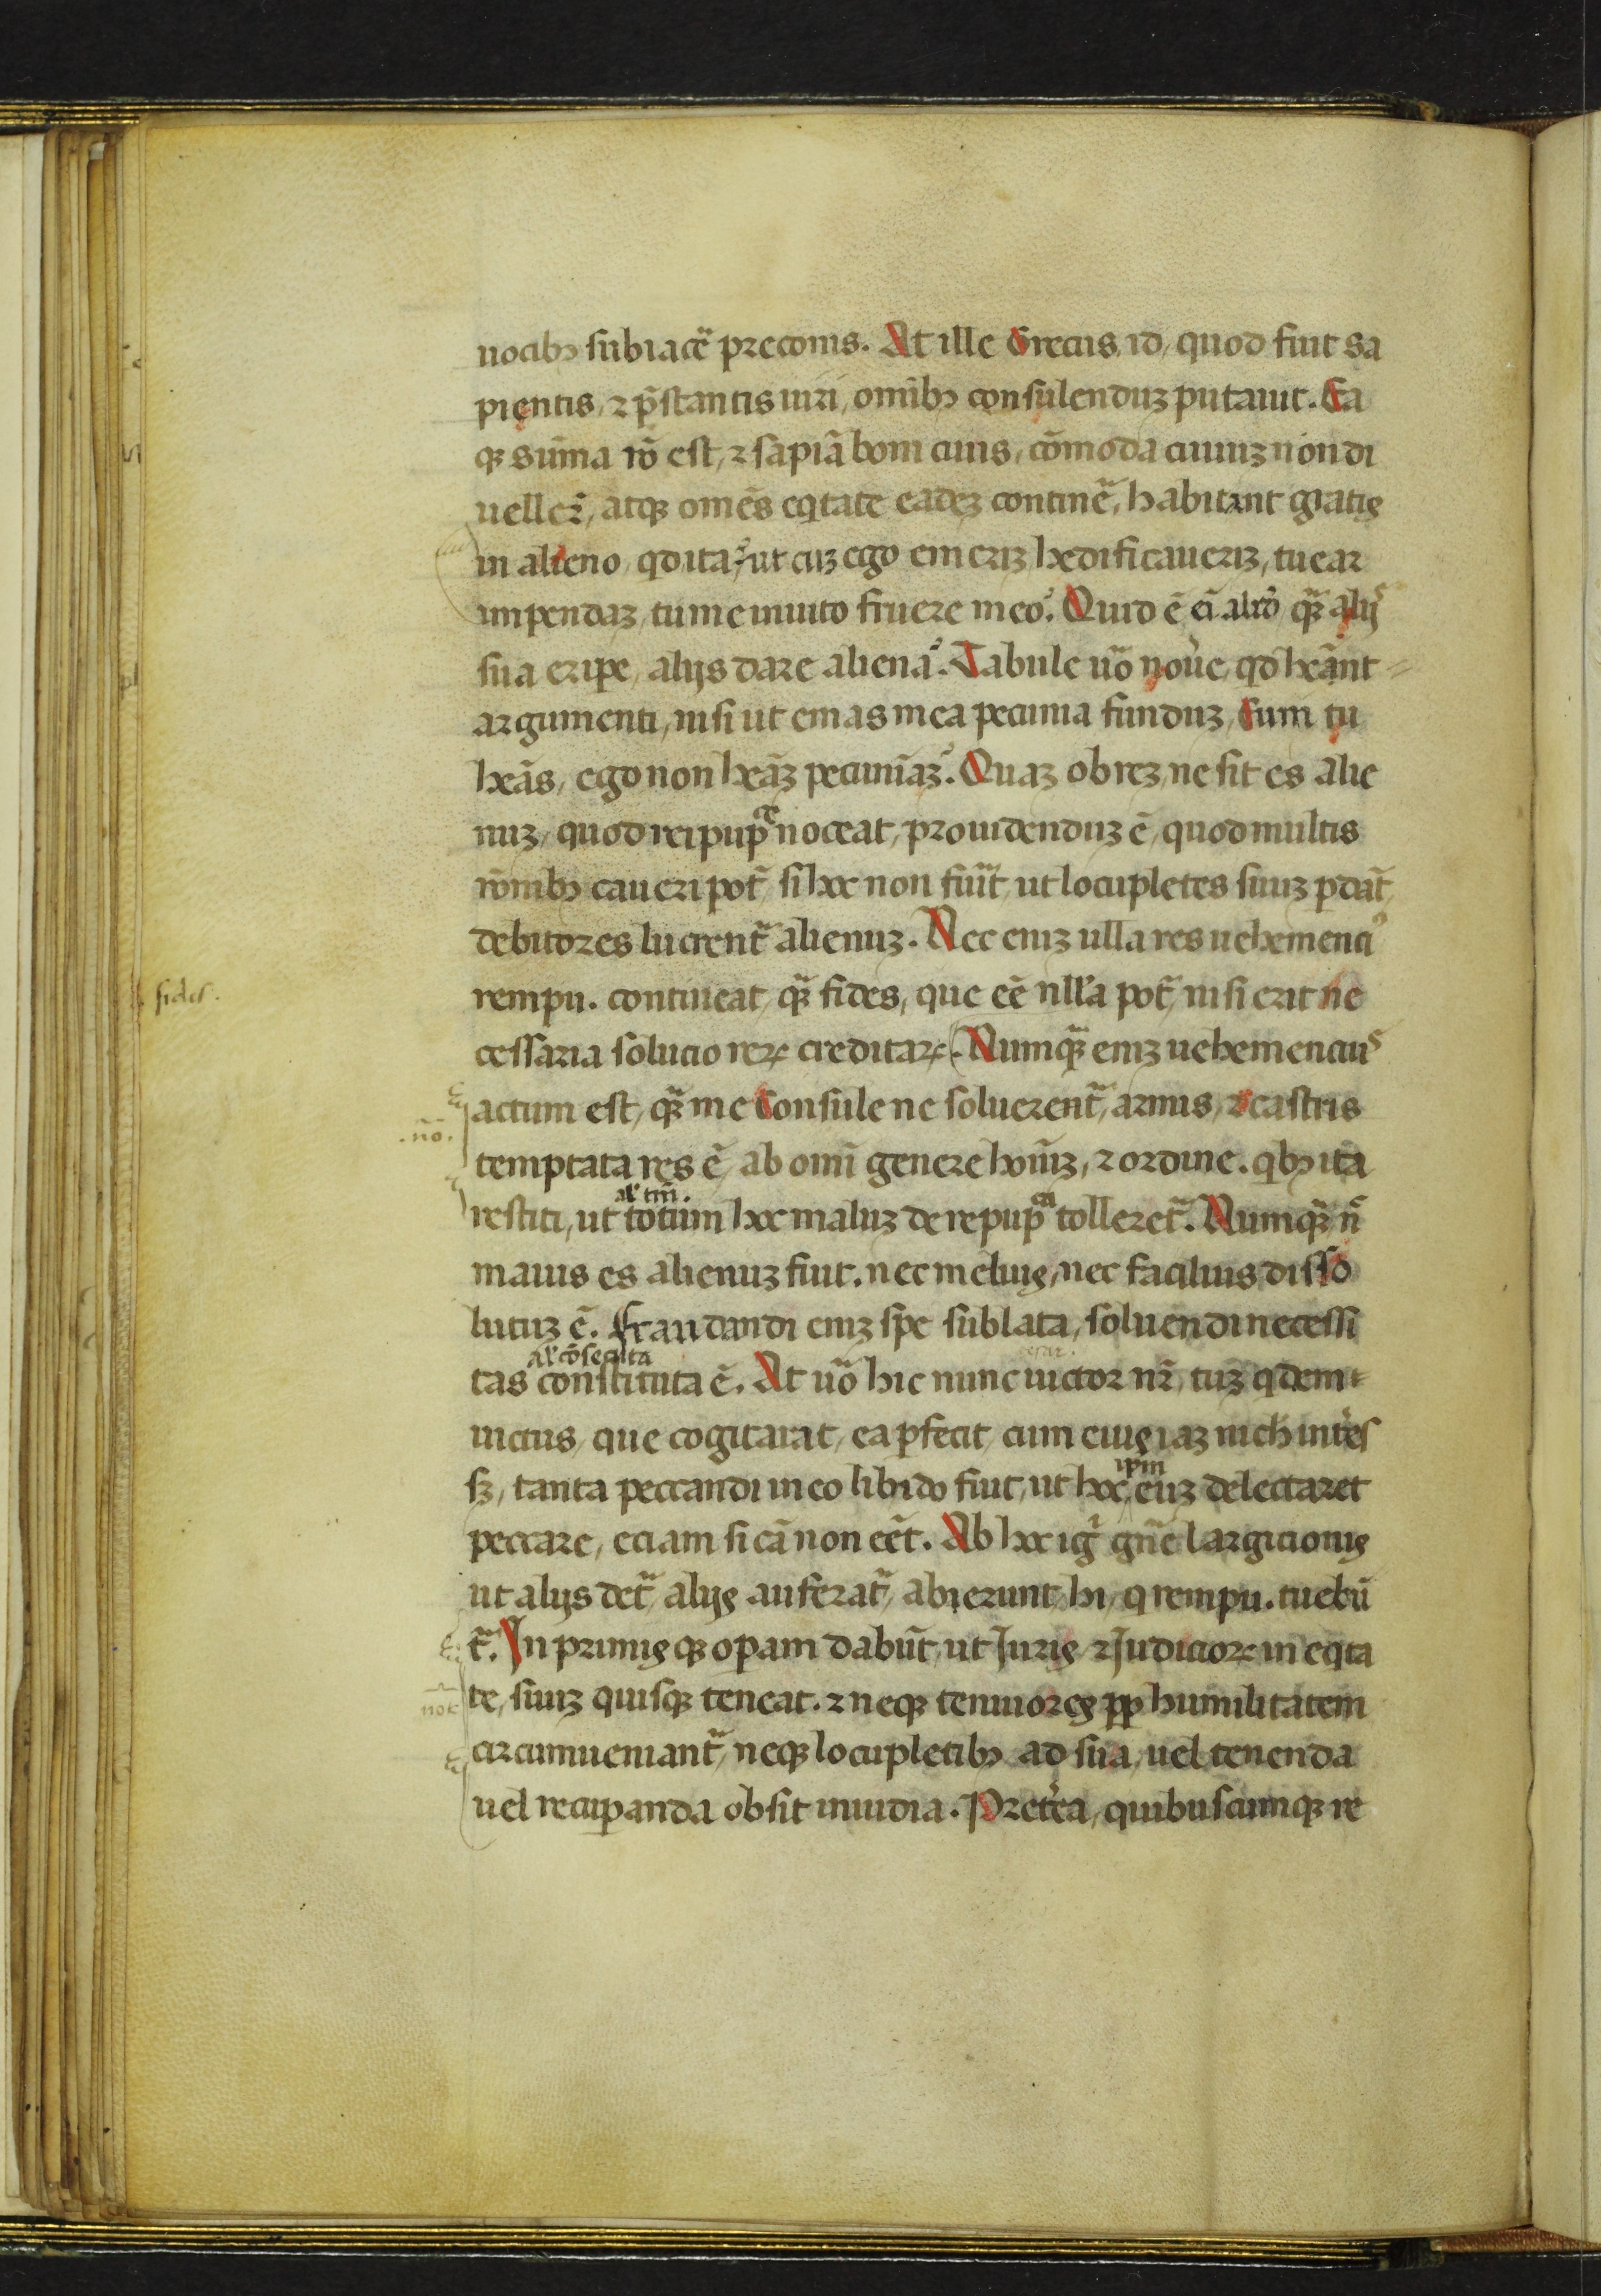 uocibꝫ subiacē preconis. At ille Grecus, id, quod fuit sa
pientis, ⁊ p̄stantis uiri, omībꝫ consulenduꝫ putauit. Ea
qꝫ sūma rō est, ⁊ sapiā boni ciuis, cōmoda ciuiuꝫ non di
uellere, atqꝫ omēs eqitate eadeꝫ continē, habitant gratis
in alieno, qd ita? ut cuꝫ ego emeriꝫ hedificaueriꝫ, tuear
impendaꝫ, tu me inuito fruere meo? Quid ē ei aliud qꝫ alijs
sua eripe, alijs dare aliena? Tabule uō noue, qd heānt
argumenti, nisi ut emas mea pecunia funduꝫ, Eum tu
heās, ego non heāꝫ pecuniāꝫ? Quaꝫ ob reꝫ, ne sit es alie
nuꝫ, quod reipupᶜᵉ noceat, prouidenduꝫ ē, quod multis
rōnibꝫ caueri pot̄, si hoc non fuīt, ut locupletes suuꝫ pdāt,
debitores lucrent̄ alienuꝫ. Nec eniꝫ ulla res uehemenciꝰ
fides.
rempu. contineat, qꝫ fides, que eē nlla pot̄, nisi erit ne
cessaria solucio reꝝ creditaꝝ. Numqꝫ eniꝫ uehemenciuˢ
actum est, qꝫ me Consule ne soluerent̄, armis, ⁊ castris
.nō.
temptata res ē, ab omī genere hoīuꝫ, ⁊ ordine. qbꝫ ita
al' tm̄.
restiti, ut totum hoc maluꝫ de repupᶜᵃ tolleret̄. Numqꝫ n̄
maius es alienuꝫ fuit. nec melius, nec facilius disso
lutuꝫ ē. Fraudandi eniꝫ spe sublata, soluendi necessi
al' cōsecuta
tas constituta ē. At uō hic nunc uictor nr̄, tuꝫ qdem
uictus, que cogitarat, ea pfecit, cum eius iaꝫ nich intēs
ipm
sꝫ, tanta peccandi in eo libido fuit, ut hoc, euꝫ delectaret
peccare, eciam si cā non eēt. Ab hoc igr̄ gn̄e largicionis
ut alijs det̄, alijs auferat̄, abierunt hi, q rempu. tuebū
t̄. In primisqꝫ opam dabūt, ut Iuris ⁊ Iudicioꝝ in eqita
not
te, suuꝫ quisqꝫ teneat. ⁊ neqꝫ tenuiores pp humilitatem
circumueniant̄, neqꝫ locupletibꝫ ad sua, uel tenenda
uel recipanda obsit inuidia. Pretēa, quibuscumqꝫ re